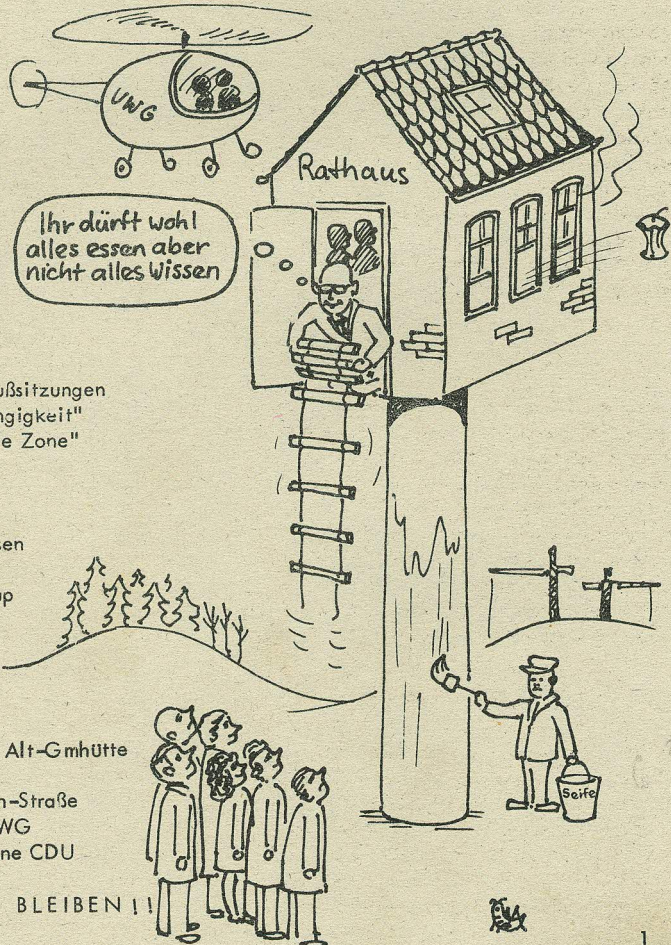 UWG
Rathaus
Ihr dürft wohl
alles essen aber
nicht alles Wissen
ußsitzungen
ngigkeit"
e Zone"
sen
up
Alt-Gmhütte
n-Straße
WG
ne CDU
BLEIBEN !!
Seife
1